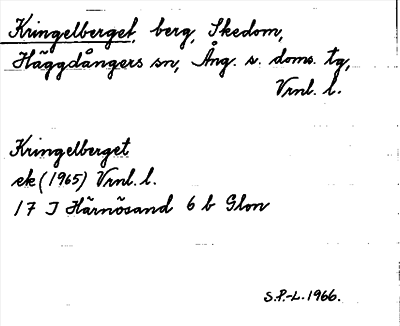 Kringelberget, berg, Skedom,
Häggdångers sn, Ång. s. doms. tg,
Vrnl. l.
Kringelberget
ek (1965) Vrnl. l.
17 I Härnösand 6 b Glon
S.P.-L. 1966.